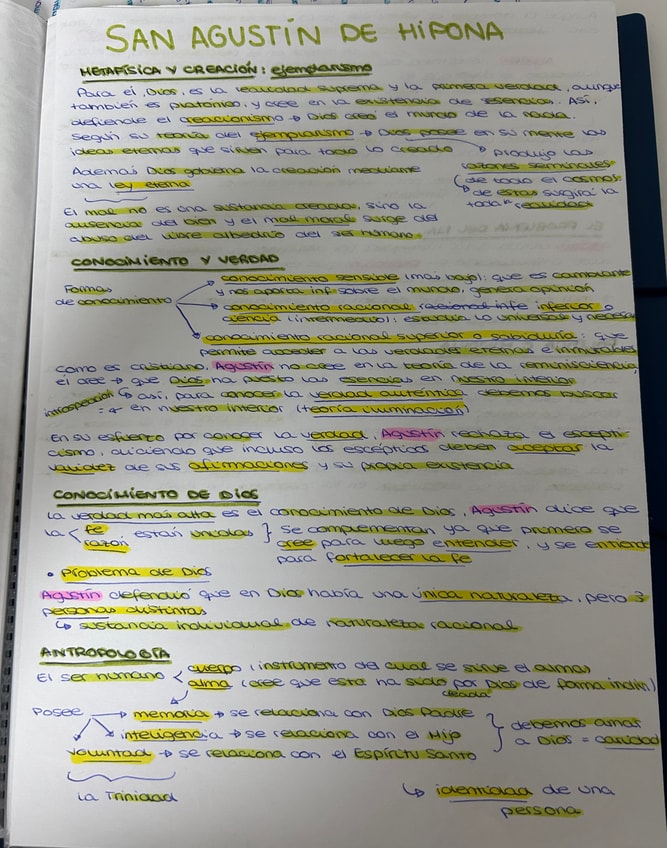 SAN AGUSTÍN DE HIPONA
METAFÍSICA Y CREACIÓN: ejemplarismo
Para él, Dios, es la realidad suprema y la primera verdad, aunque
también es platónico, y cree en la existencia de esencias. Así,
defiende el creacionismo → Dios creó el mundo de la nada.
Según su teoría del ejemplarismo → Dios posee en su mente las
ideas eternas que sirven para todo lo creado
produjo las
razones seminales
de todo el cosmos
de estas surgirá la
toda realidad
Además Dios gobierna la creación mediante
una ley eterna
El mal no es una sustancia creada, sino la
ausencia del bien y el mal moral surge del
abuso del libre albedrío del ser humano.
CONOCIMIENTO Y VERDAD
Formas
de conocimiento
conocimiento sensible (más bajo): que es cambiante
y nos aporta inf sobre el mundo, genera opinión
conocimiento racional inferior o
ciencia (intermedio): estudia lo universal y neces
conocimiento racional superior o sabiduría: que
permite acceder a las verdades eternas e inmutables
Como es cristiano, Agustín no cree en la teoría de la reminisciencia,
él cree → que Dios ha puesto las esencias en nuestro interior
introspección
↳ así, para conocer la verdad auténtica debemos buscar
en nuestro interior (teoría iluminación)
En su esfuerzo por conocer la verdad, Agustín rechaza el escepti-
cismo, diciendo que incluso los escépticos deben aceptar la
validez de sus afirmaciones y su propia existencia
CONOCIMIENTO DE DIOS
La verdad más alta es el conocimiento de Dios, Agustín dice que
la < fe razón están unidas } se complementan ya que primero se
cree para luego entender, y se entiende
para fortalecer la fe
• problema de Dios
Agustín defendió que en Dios había una única naturaleza, pero 3
personas distintas
↳ sustancia individual de naturaleza racional
ANTROPOLOGÍA
El ser humano < cuerpo (instrumento del cual se sirve el alma)
alma (cree que esta ha sido creada por Dios de forma indiv.)
Posee → memoria → se relaciona con Dios Padre
→ inteligencia → se relaciona con el Hijo
voluntad → se relaciona con el Espíritu Santo
} debemos amar
a Dios = caridad
La Trinidad
↳ identidad de una
persona